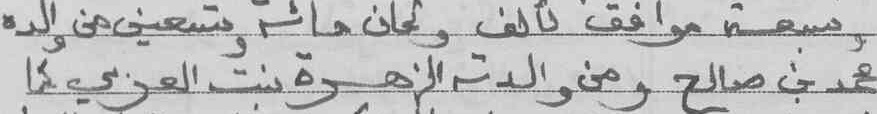 وسبعة موافق لألف وثمان مائة وتسعين من والده
محمد بن صالح ومن والدته الزهرة بنت العربي